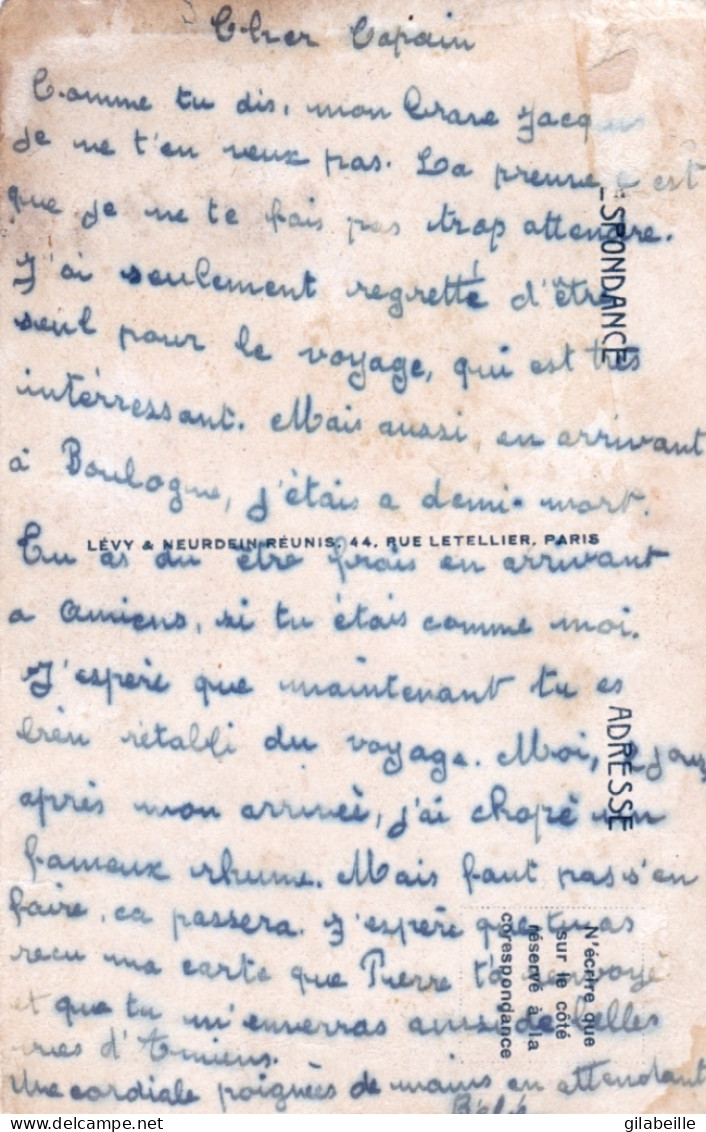 Cher Copain
Comme tu dis, mon brave Jacques
je ne t'en veux pas. La preuve c'est
que je ne te fais pas trop attendre.
J'ai seulement regretté d'être
seul pour le voyage, qui est très
intérressant. Mais aussi, en arrivant
à Boulogne, j'étais a demi-mort.
LÉVY & NEURDEIN RÉUNIS, 44, RUE LETELLIER, PARIS
Tu as du être frais en arrivant
a Amiens, si tu étais comme moi.
J'espère que maintenant tu es
bien rétabli du voyage. Moi, 2 jours
après mon arrivée, j'ai chopé un
fameux rhume. Mais faut pas s'en
faire, ca passera. J'espère que tu as
recu ma carte que Pierre t'a envoyé
et que tu m'enverras aussi de belles
vues d'Amiens.
Une cordiale poignées de mains en attendant
SPONDANCE
ADRESSE
N'écrire que
sur le côté
réservé à la
corespondance
gilabeille